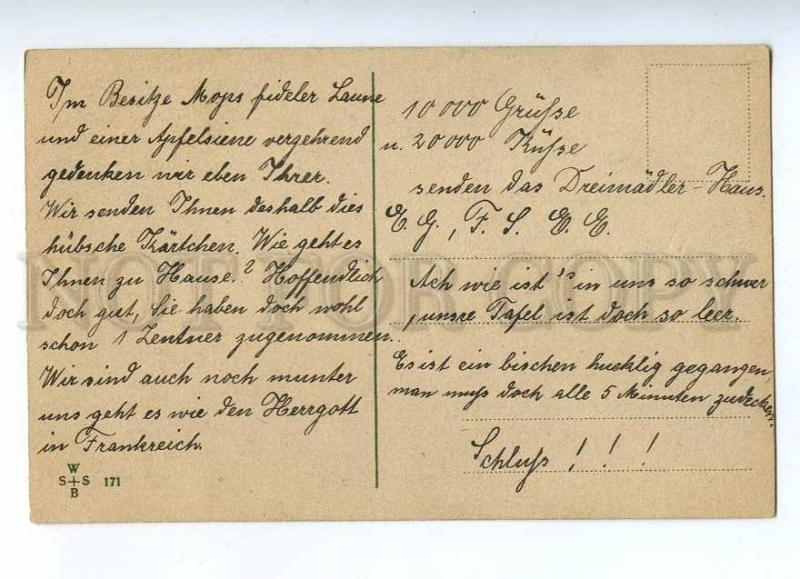 Im Besitze Mops fideler Laune
und einer Apfelsiene vergehrend
gedenken wir eben Ihrer.
Wir senden Ihnen deshalb dies
hübsche Kärtchen. Wie geht es
Ihnen zu Hause.? Hoffendlich
doch gut, Sie haben doch wohl
schon 1 Zentner zugenommen.
Wir sind auch noch munter
uns geht es wie den Herrgott
in Frankreich.
W
S S
B
171
10 000 Grüße
u. 20 000 Küße
senden das Dreimädler-Haus.
E. G., F. S. E. E.
Ach wie ist's in uns so schwer
, unsre Tafel ist doch so leer.
Es ist ein bischen hucklig gegangen,
man muß doch alle 5 Minuten zudecken.
Schluß !!!
NOT FOR COPY